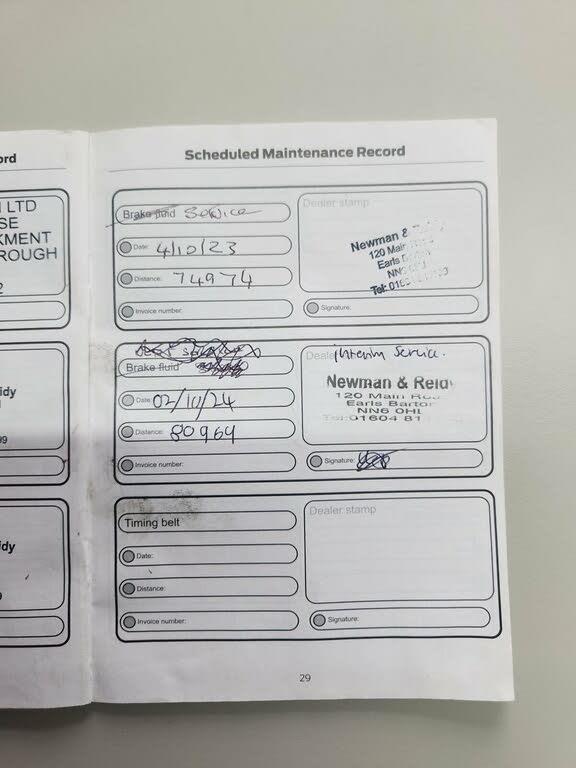 ord
LTD
SE
KMENT
ROUGH
2
idy
99
idy
9
Scheduled Maintenance Record
Brake fluid Service
Date: 4/10/23
Distance: 74974
Invoice number:
Dealer stamp
Newman &
120 Main
Earls
NN6
Tel:
Signature:
Brake fluid
Date: 02/10/24
Distance: 80969
Invoice number:
Deale interim Service.
Newman & Reidy
120 Main
Earls Barton
NN6 0HL
Tel: 01604 81
Signature:
Timing belt
Date:
Distance:
Invoice number:
Dealer stamp
Signature:
29